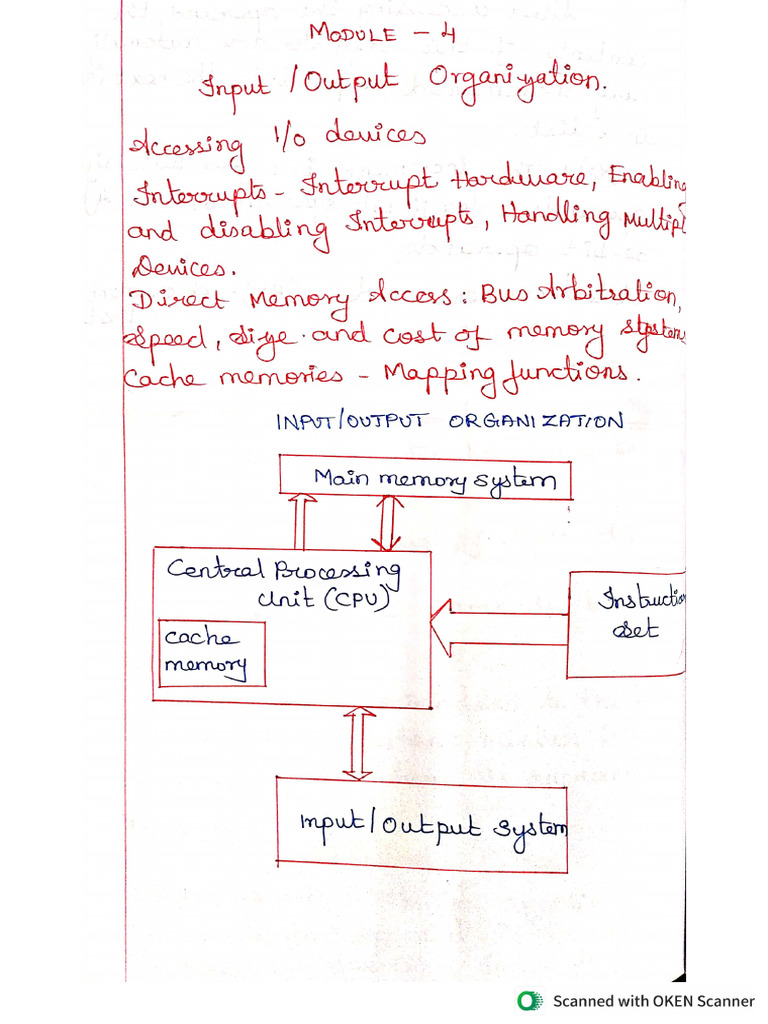 MODULE - 4
Input / Output Organization.
Accessing I/o devices
Interrupts - Interrupt Hardware, Enabling
and disabling Interrupts, Handling Multipl
Devices.
Direct Memory Access: Bus Arbitration,
Speed, Size and cost of memory systems
Cache memories - Mapping functions.
INPUT/OUTPUT ORGANIZATION
Main memory system
Central Processing
Unit (CPU)
Cache
memory
Instruction
Set
Input/Output System
Scanned with OKEN Scanner